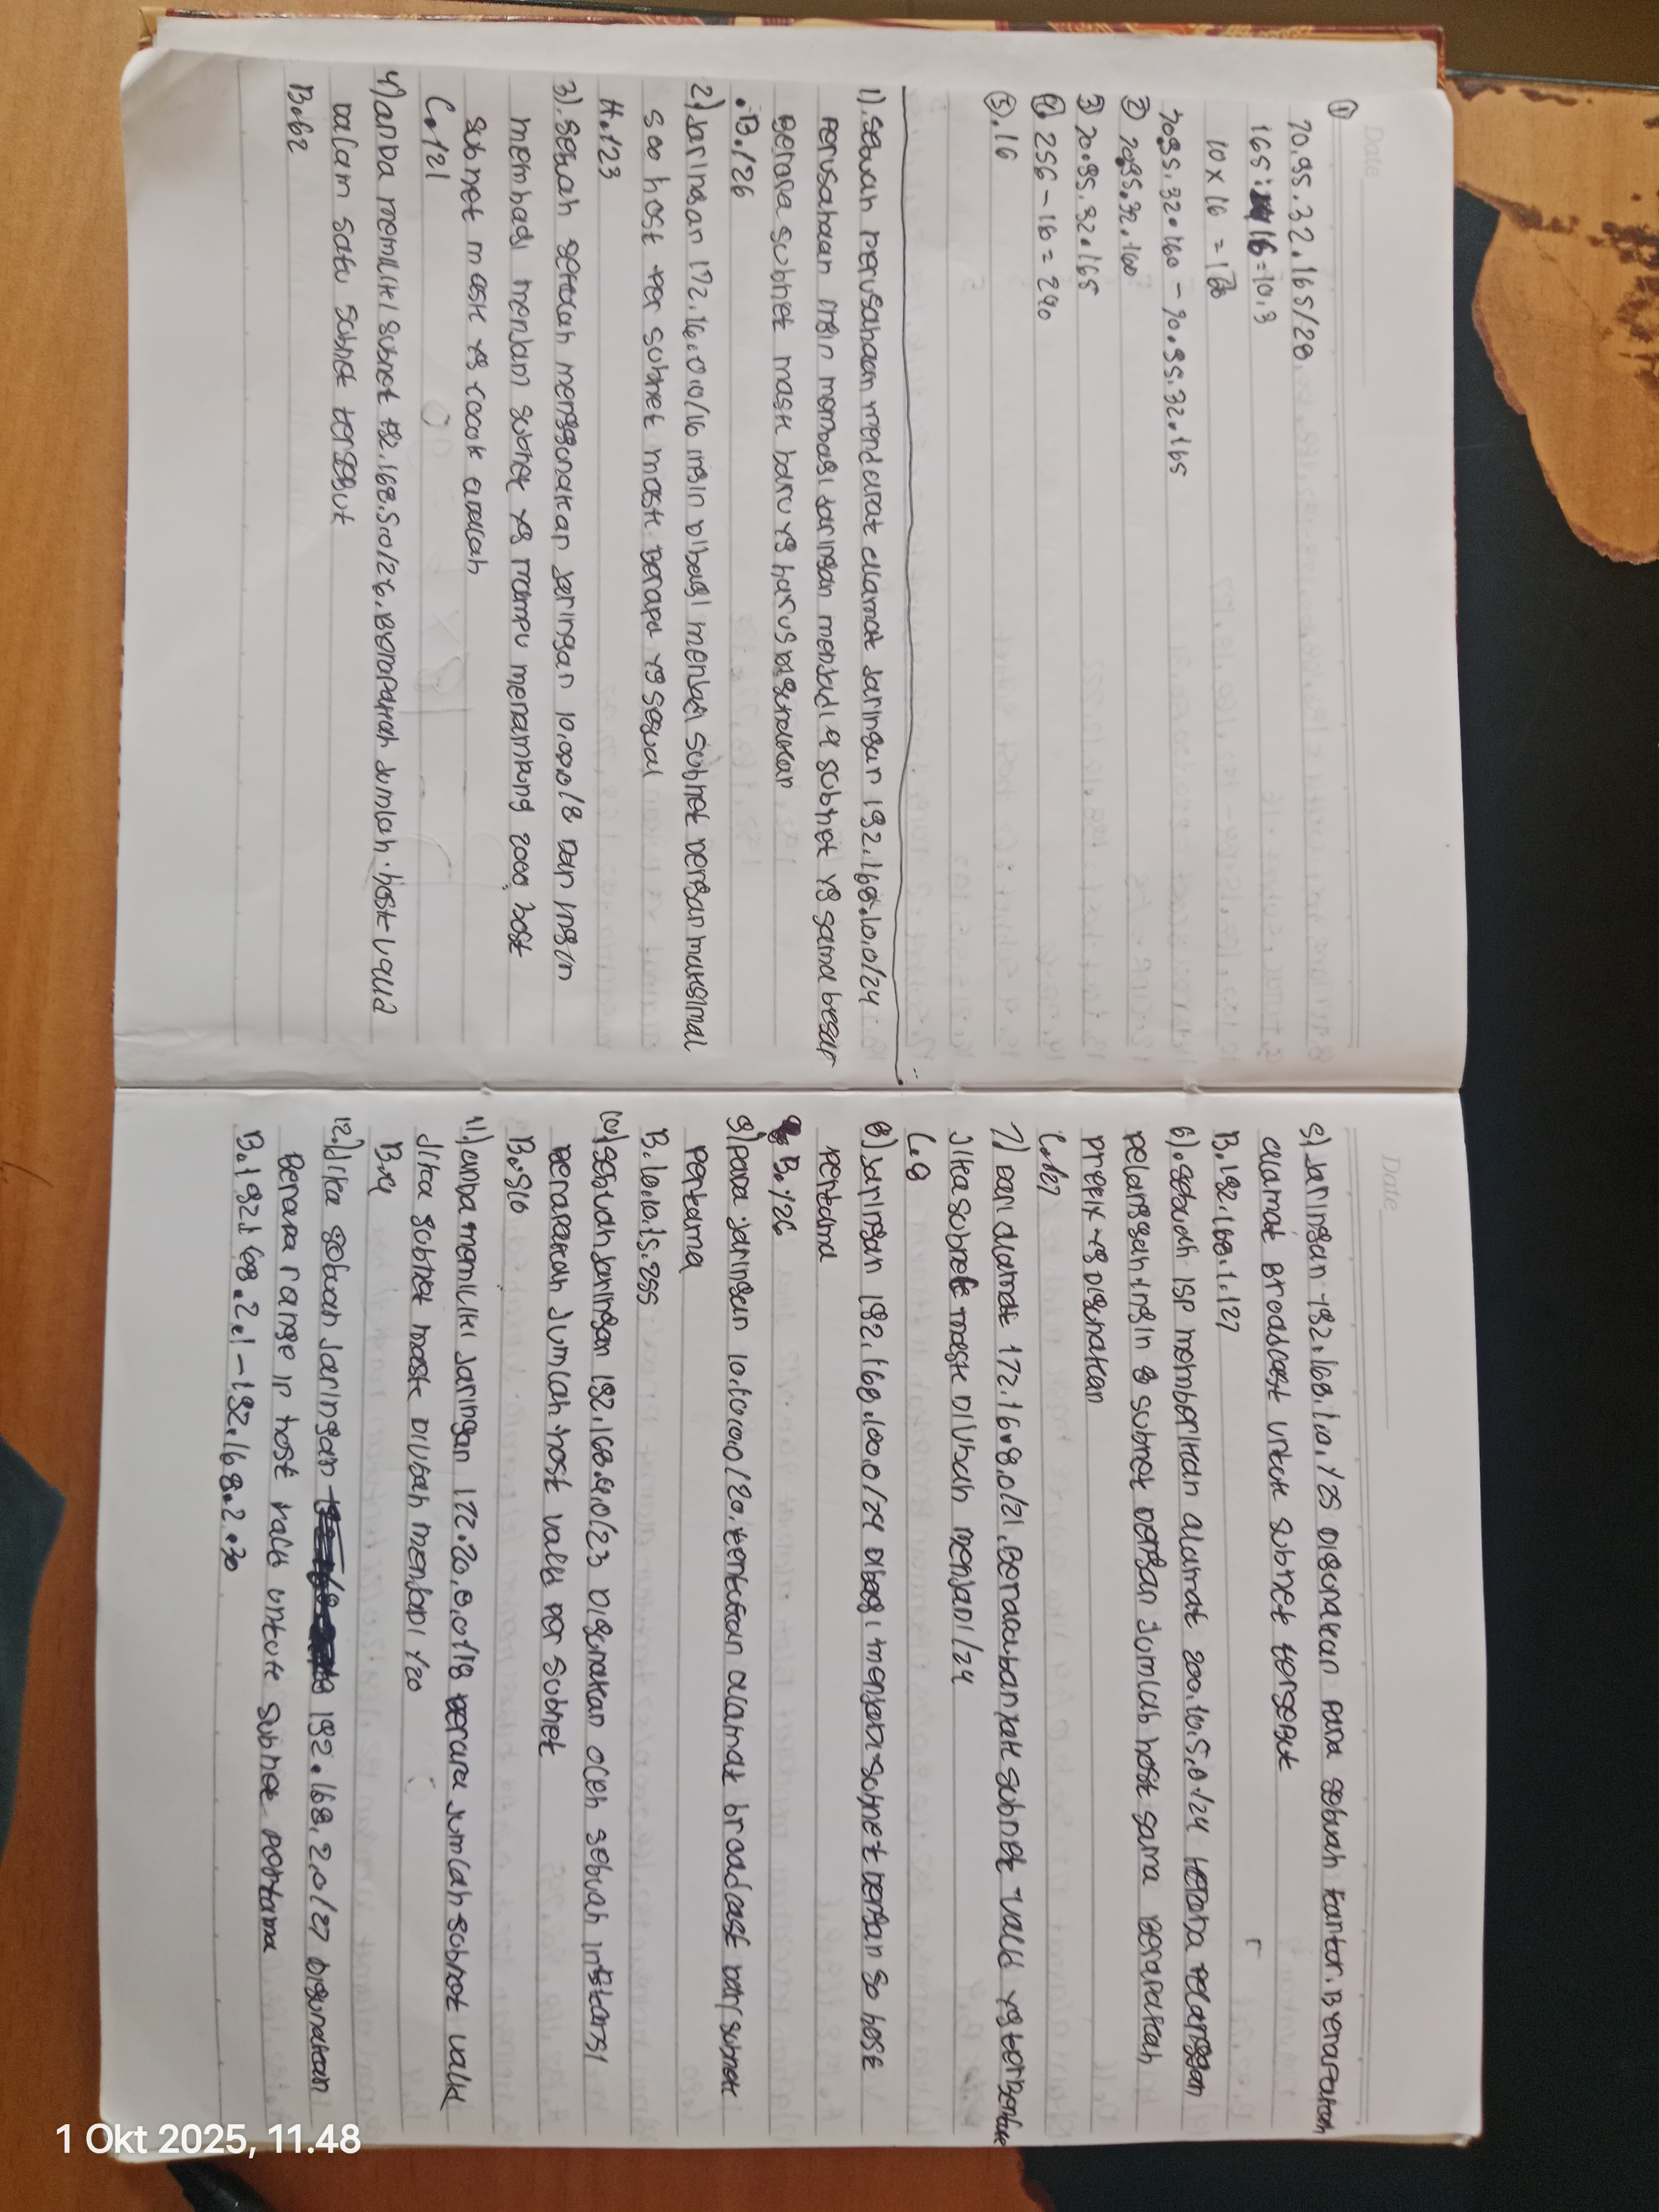 Date
①
70.95.32.165/28
165:16=10,3
10 x 16 = 160
70.95.32.160 - 70.95.32.165
② 70.95.32.160
③ 70.95.32.165
④ 256 - 16 = 240
⑤.16
1). sebuah perusahaan mendapat alamat jaringan 192.168.10.0/24
perusahaan ingin membagi jaringan menjadi 4 subnet yg sama besar
Berapa subnet mask baru yg harus digunakan
.B./26
2) Jaringan 172.16.0.0/16 ingin dibagi menjadi subnet dengan maksimal
500 host per subnet mask berapa yg sesuai
H./23
3). sebuah sekolah menggunakan jaringan 10.0.0.0/8 dan ingin
membagi menjadi subnet yg mampu menampung 2000 host
subnet mask yg cocok adalah
C./21
4) anda memiliki subnet 192.168.5.0/26. Berapakah jumlah host valid
dalam satu subnet tersebut
B.62
Date
5) Jaringan 192.168.1.0./25 Digunakan pada sebuah kantor. Berapakah
alamat Broadcast untuk subnet tersebut
B.192.168.1.127
6). sebuah ISP memberikan alamat 200.10.5.0/24 kepada pelanggan
pelanggan ingin 8 subnet dengan jumlah host sama berapakah
prefix yg digunakan
C./27
7) Dari alamat 172.16.8.0/21. Berapa banyak subnet valid yg terbentuk
Jika subnet mask Diubah menjadi /24
C.8
8) Jaringan 192.168.100.0/24 dibagi menjadi subnet dengan 50 host
pertama
B./26
9) pada jaringan 10.10.0.0/20. tentukan alamat broadcast dari subnet
pertama
B.10.10.15.255
10) sebuah jaringan 192.168.4.0/23 Digunakan oleh sebuah instansi
Berapakah Jumlah host valid per subnet
B.510
11.) anda memiliki jaringan 172.20.0.0/18 berapa jumlah subnet valid
Jika subnet mask Diubah menjadi /20
B.4
12.) Jika sebuah Jaringan 192.168.2.0/27 Digunakan
Berapa range ip host valid untuk subnet pertama
B.192.168.2.1 - 192.168.2.30
1 Okt 2025, 11.48